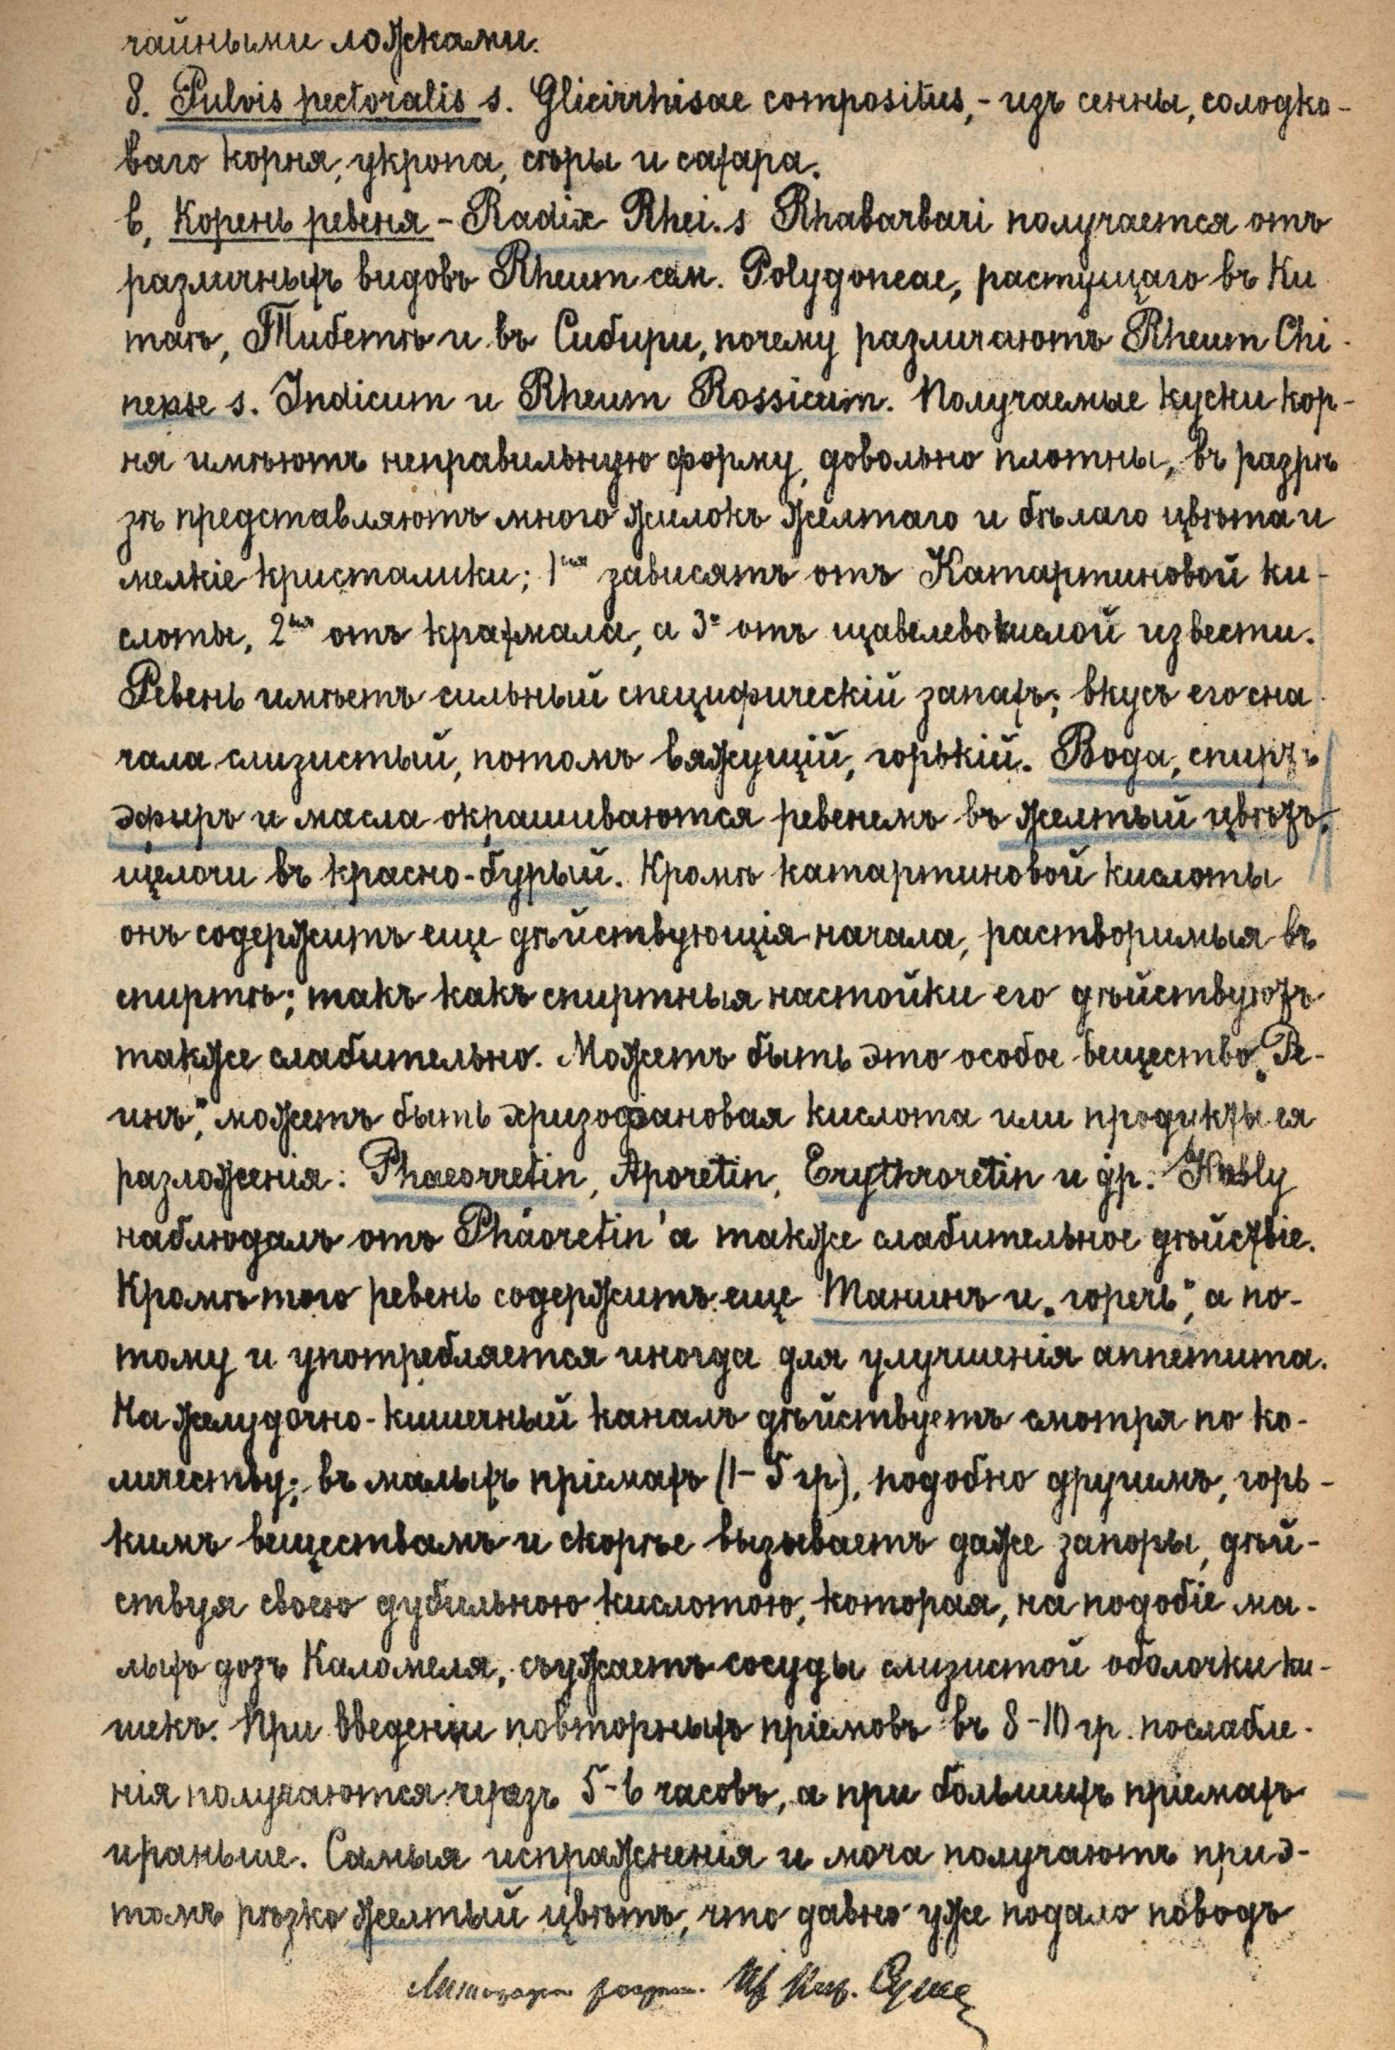 чайными ложками.
8. Pulvis pectoralis s. Glicirrhisae compositus, - изъ сенны, солодко-
ваго корня, укропа, сѣры и сахара.
в, Корень ревеня - Radix Rhei. s Rhabarbari получается отъ
различныхъ видовъ Rheum сем. Polygoneae, растущаго въ Ки
таѣ, Тибетѣ и въ Сибири, почему различаютъ Rheum Chi-
nense s. Indicum и Rheum Rossicum. Получаемые куски кор-
ня имѣютъ неправильную форму, довольно плотны, въ разрѣ
зѣ представляютъ много жилокъ желтаго и бѣлаго цвѣта и
мелкіе кристалики; 1ыя зависятъ отъ Катартиновой ки-
слоты, 2ыя отъ крахмала, а 3е отъ щавелевокислой извести.
Ревень имѣетъ сильный специфическій запахъ; вкусъ его сна-
чала слизистый, потомъ вяжущій, горькій. Вода, спиртъ
эфиръ и масла окрашиваются ревенемъ въ желтый цвѣтъ,
щелочи въ красно-бурый. Кромѣ катартиновой кислоты
онъ содержитъ еще дѣйствующія начала, растворимыя въ
спиртѣ; такъ какъ спиртныя настойки его дѣйствуютъ
также слабительно. Можетъ быть это особое вещество „Ре-
инъ“, можетъ быть хризофановая кислота или продукты ея
разложенія: Phaeorretin, Aporetin, Erythroretin и др. Kubly
наблюдалъ отъ Phäoretin'а также слабительное дѣйствіе.
Кромѣ того ревень содержитъ еще Танинъ и „горечь“, а по-
тому и употребляется иногда для улучшенія аппетита.
На желудочно-кишечный каналъ дѣйствуетъ смотря по ко-
личеству; въ малыхъ пріемахъ (1-5 гр), подобно другимъ, горь-
кимъ веществамъ и скорѣе вызываетъ даже запоры, дѣй-
ствуя своею дубильною кислотою, которая, на подобіе ма-
лыхъ дозъ Каломеля, съужаетъ сосуды слизистой оболочки ки-
шекъ. При введеніи повторныхъ пріемовъ въ 8-10 гр. послабле-
нія получаются черезъ 5-6 часовъ, а при большихъ пріемахъ
и раньше. Самыя испражненія и моча получаютъ при э-
томъ рѣзко желтый цвѣтъ, что давно уже подало поводъ